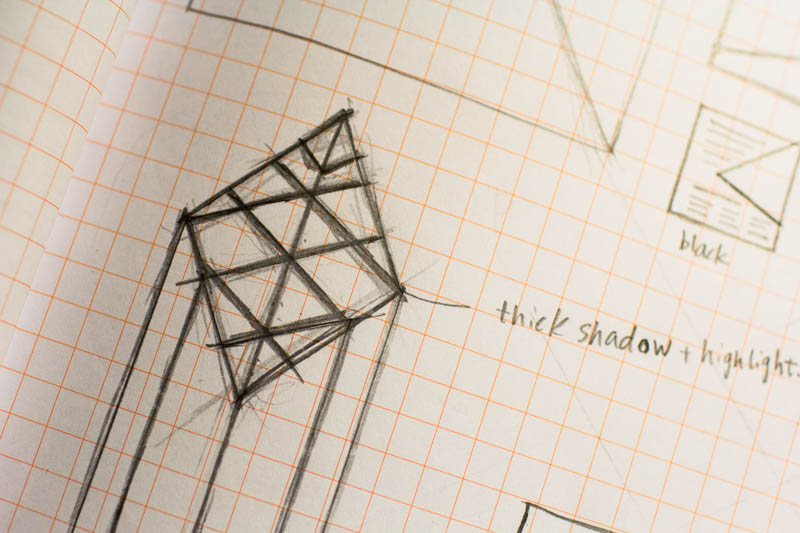 black
thick shadow + highlight.